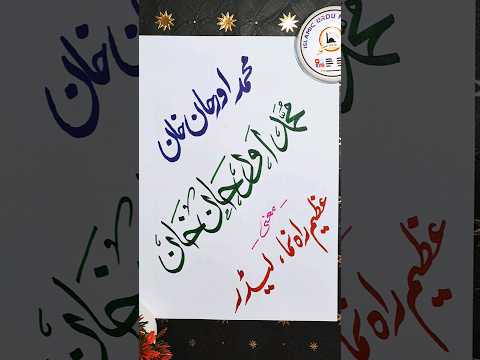 محمد اورحان خان
مُحَمَّد اَورحَان خَان
معنیٰ
عظیم راہ نما، لیڈر
ISLAMIC URDU